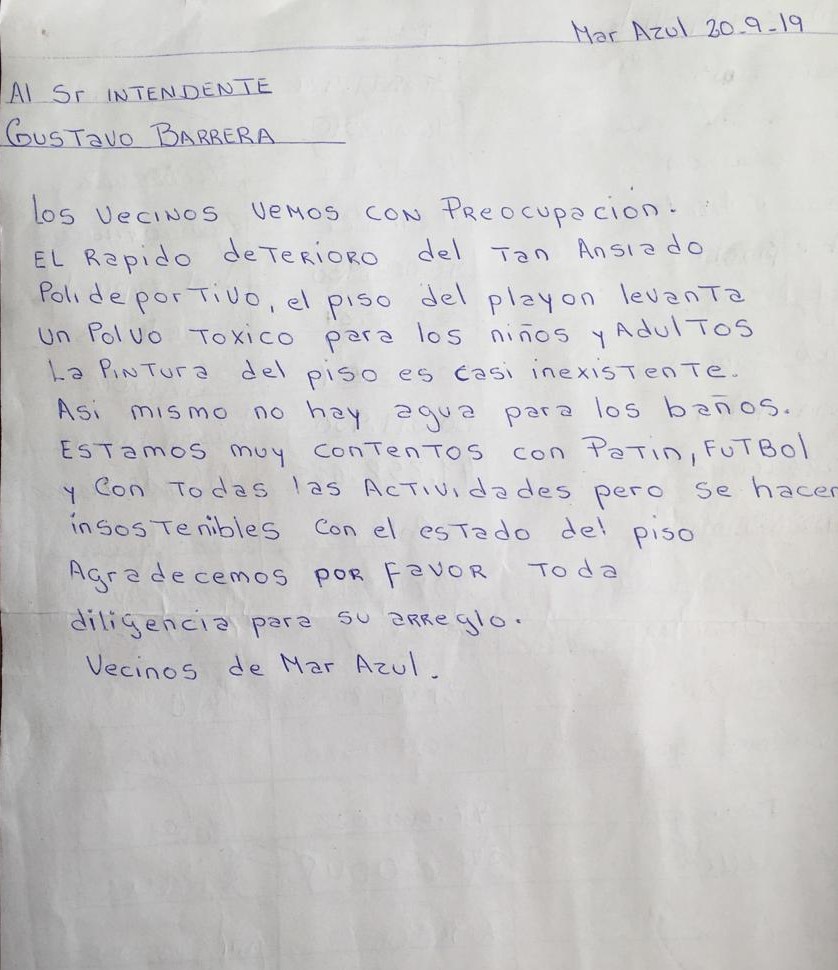 Mar Azul 20-9-19
Al Sr INTENDENTE
GUSTavo BARRERA
Los Vecinos vemos con Preocupación.
EL Rapido deTERIORO del Tan Ansiado
PolidePorTivo, el piso del playon levanTa
un Polvo Toxico para los niños y AdulTos
La PinTura del piso es casi inexisTenTe.
Asi mismo no hay agua para los baños.
EsTamos muy conTenTos con PaTin, FuTBol
y con Todas las AcTividades pero se hacen
insosTenibles con el esTado del piso
Agradecemos por Favor Toda
diligencia para su arreglo.
Vecinos de Mar Azul.